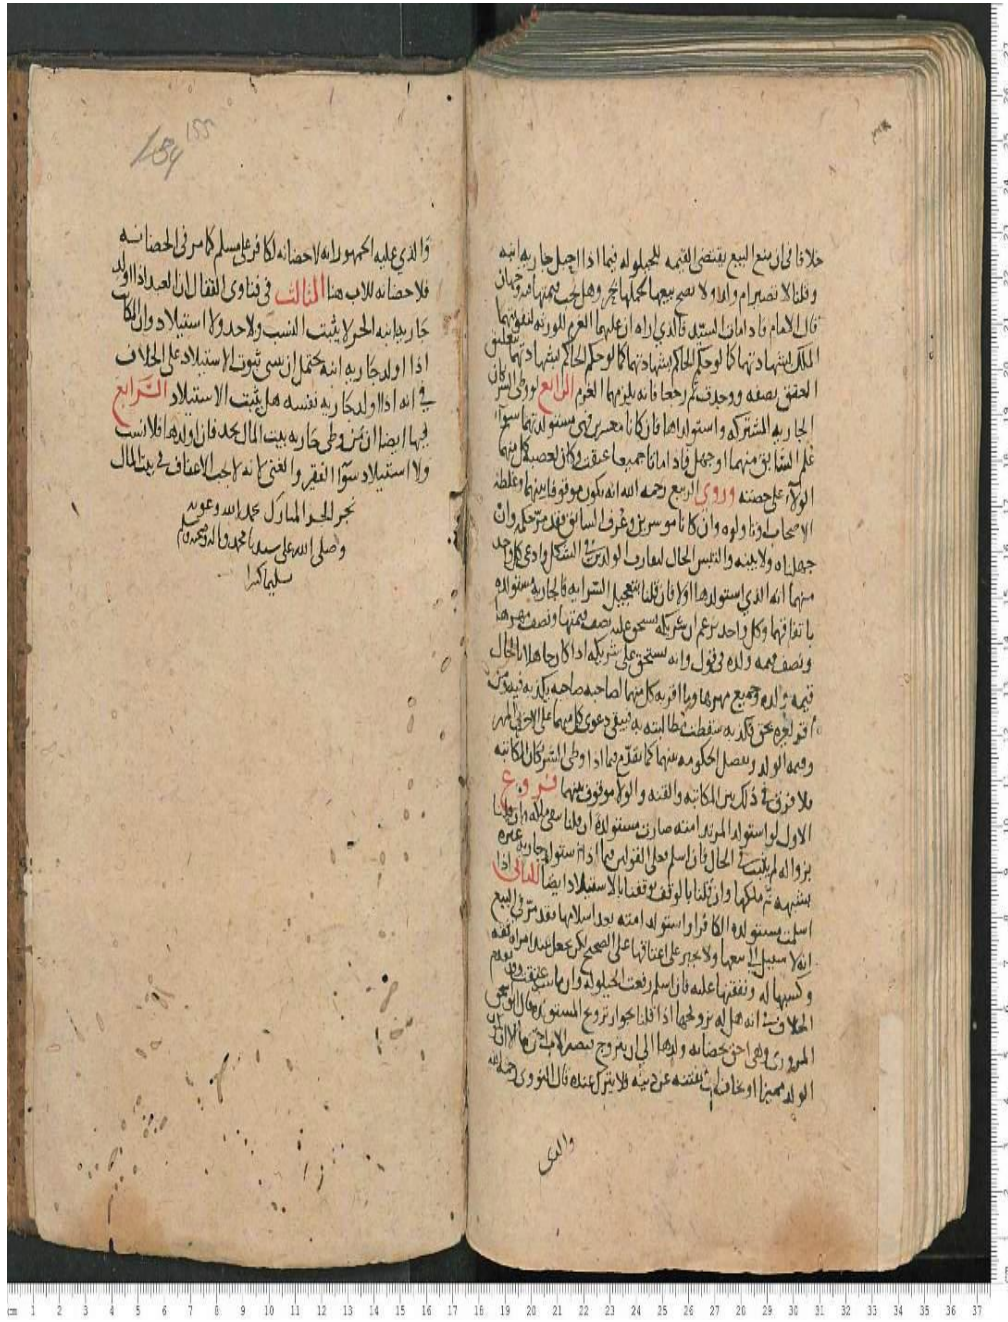 خلافا في ان منع البيع يقتضي القيمه للحيلوله فيما اذا احبل جاريه ابنه
وقلنا لا تصير ام ولد ولا يصح بيعها لحملها بحر وهل تجب قيمتها فيه وجهان
قال الامام فاذا مات السيد فالذي اراه ان عليهما الغرم للورثه لتفويتهما
الملك بشهادتهما كما لو حكم الحاكم بشهادتهما كما لو حكم الحاكم بشهادتهما بتعليق
العتق بصفه ووجدت ثم رجعا فانه يلزمهما الغرم الرابع لو وطي الشريكان
الجاريه المشتركه واستولداها فان كانا معسرين فهي مستولدتهما سوآء
علم السابق منهما او جهل فاذا ماتا جميعا عتقت وكان لعصبه كل منهما
الولاء على حصته وروى الربيع رحمه الله انه يكون موقوفا بينهما وغلطه
الاصحاب او تاولوه وان كانا موسرين وعرف السابق فقد مر حكمه وان
جهلناه ولا بينه والتبس الحال لتقارب الولدين في الشكل وادعى كل واحد
منهما انه الذي استولدها اولا فان قلنا بتعجيل السرايه فالجاريه مستولده
باتفاقهما وكل واحد يزعم ان شريكه يستحق عليه نصف قيمتها ونصف مهرها
ونصف قيمه ولده في قول وانه يستحق على شريكه اذا كان جاهلا بالحال
قيمه ولده وجميع مهرها وما اقر به كل منهما لصاحبه صاحبه يكذبه فيه ومن
اقر لغيره بحق فكذبه سقطت مطالبته به فيبقى دعوى كل منهما على الاخر المهر
وقيمه الولد وتفصل الحكومه بينهما كما تقدم فيما اذا وطي الشريكان المكاتبه
فلا فرق في ذلك بين المكاتبه والقنه والولا موقوف بينهما فروع
الاول لو استولد المرتد امته صارت مستولده ان قلنا ببقى ملكه وان قلنا
بزواله لم يثبت في الحال فان اسلم فعلى القولين فيما اذا استولد جاريه غيره
بشبهه ثم ملكها وان قلنا بالوقف توقفنا بالاستيلاد ايضا الثاني اذا
اسلمت مستولده الكافر او استولد امته بعد اسلامها فقد مر في البيع
انه لا سبيل الى بيعها ولا يجبر على اعتاقها على الصحيح لكن يجعل عند امراه ثقه
وكسبها له ونفقتها عليه فان اسلم رفعت الحيلوله وان مات عتقت وقد تقدم
الخلاف في انه هل له تزويجها اذا قلنا بجواز تزويج المستولده قال ابو اسحق
المروزي وهي احق بحضانه ولدها الى ان يتزوج فيصير الاب احق بها الا ان
الولد مميزا او يخاف ان يفتنه عن دينه فلا يترك عنده قال النووي رحمه الله
والذي
والذي عليه الجمهور انه لا حضانه لكافر على مسلم كما مر في الحضانه
فلا حضانه للاب هنا الثالث في فتاوى القفال ان العبد اذا اولد
جاريه ابنه الحر لا يثبت النسب ولا حد ولا استيلاد وان المكاتب
اذا اولد جاريه ابنه يحتمل ان يبنى ثبوت الاستيلاد على الخلاف
في انه اذا اولد جاريه نفسه هل يثبت الاستيلاد الرابع
فيها ايضا ان من وطي جاريه بيت المال يحد فان اولدها فلا نسب
ولا استيلاد سوآ الفقير والغني لانه لا يجب الاعفاف في بيت المال
نجز الجزء المبارك بحمد الله وعونه
وصلى الله على سيدنا محمد واله وصحبه وسلم
تسليما كثيرا
155